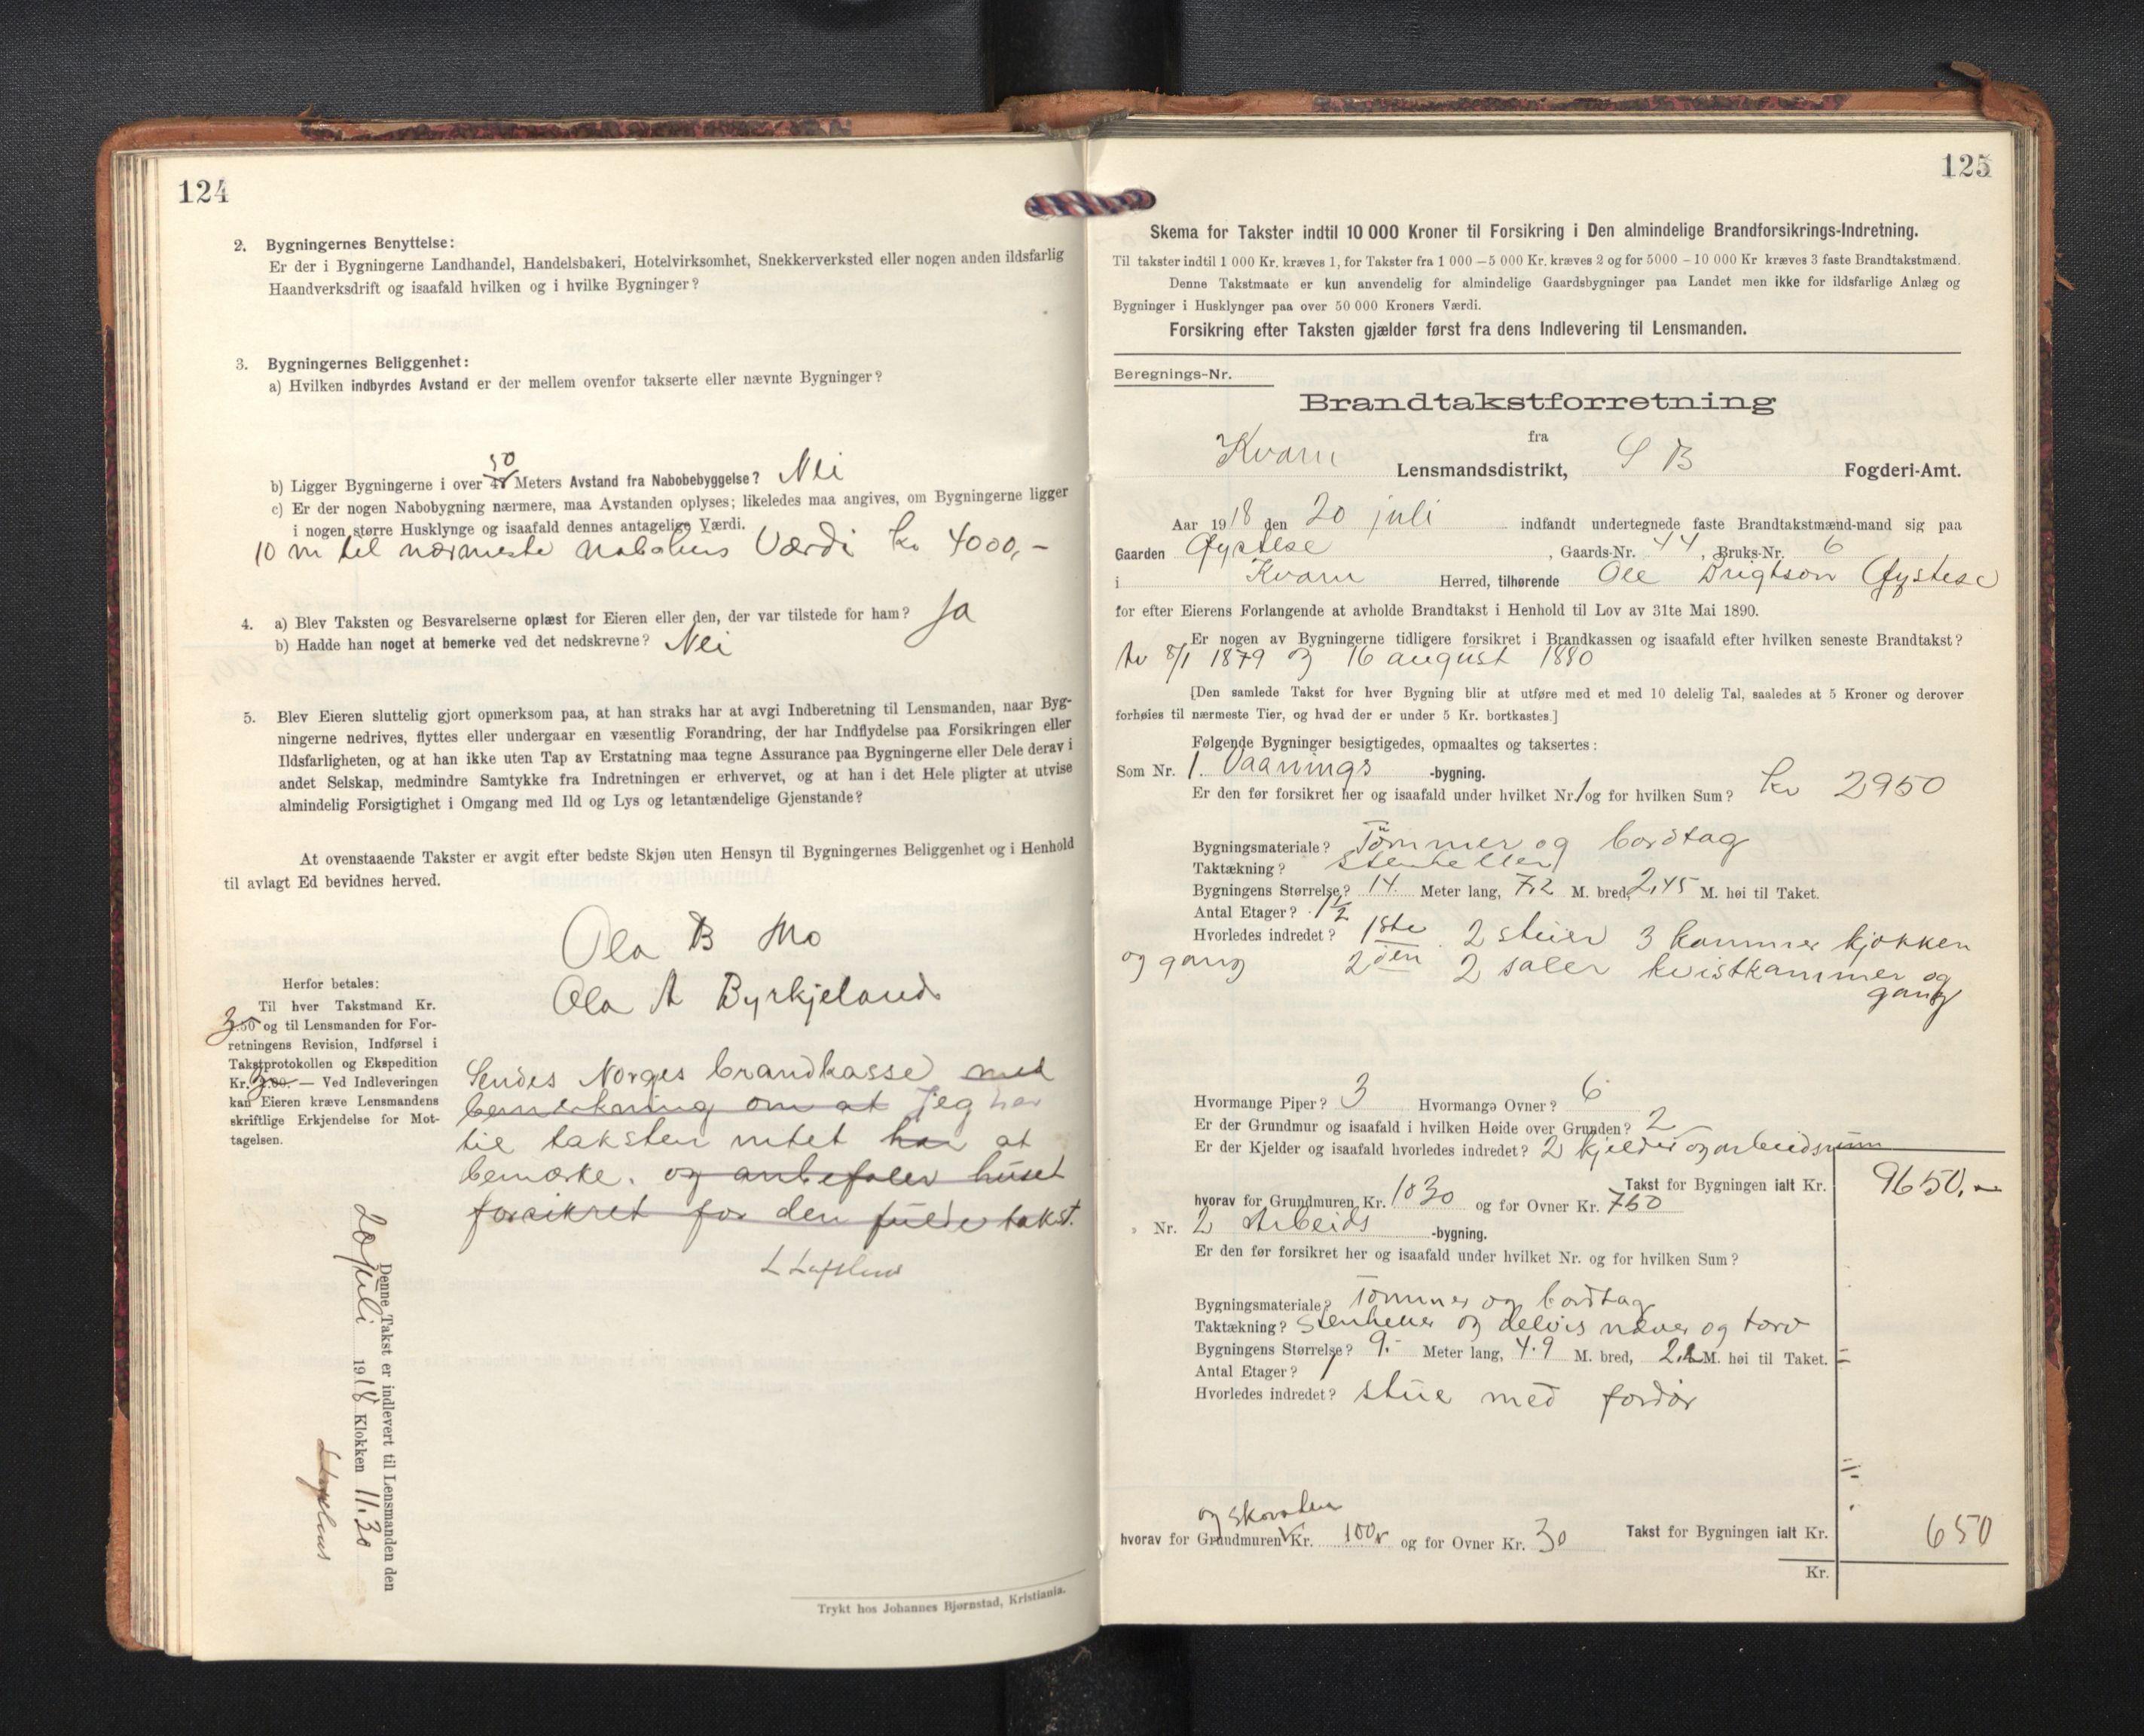 124
2. Bygningernes Benyttelse:
Er der i Bygningerne Landhandel, Handelsbakeri, Hotelvirksomhet, Snekkerverksted eller nogen anden ildsfarlig
Haandverksdrift og isaafald hvilken og i hvilke Bygninger?
3. Bygningernes Beliggenhet:
a) Hvilken indbyrdes Avstand er der mellem ovenfor takserte eller nævnte Bygninger?
50
b) Ligger Bygningerne i over Meters Avstand fra Nabobebyggelse? Nei
c) Er der nogen Nabobygning nærmere, maa Avstanden oplyses; likeledes maa angives, om Bygningerne ligger
i nogen større Husklynge og isaafald dennes antagelige Værdi.
10 m til nærmeste nabohus Værdi kr 4000,-
4. a) Blev Taksten og Besvarelserne oplæst for Eieren eller den, der var tilstede for ham? Ja
b) Hadde han noget at bemerke ved det nedskrevne? Nei
5. Blev Eieren sluttelig gjort opmerksom paa, at han straks har at avgi Indberetning til Lensmanden, naar Byg-
ningerne nedrives, flyttes eller undergaar en væsentlig Forandring, der har Indflydelse paa Forsikringen eller
Ildsfarligheten, og at han ikke uten Tap av Erstatning maa tegne Assurance paa Bygningerne eller Dele derav i
andet Selskap, medmindre Samtykke fra Indretningen er erhvervet, og at han i det Hele pligter at utvise
almindelig Forsigtighet i Omgang med Ild og Lys og letantændelige Gjenstande?
At ovenstaaende Takster er avgit efter bedste Skjøn uten Hensyn til Bygningernes Beliggenhet og i Henhold
til avlagt Ed bevidnes herved.
Ola B Mo
Ola A Byrkjeland
Herfor betales:
Til hver Takstmand Kr.
3.50 og til Lensmanden for For-
retningens Revision, Indførsel i
Takstprotokollen og Ekspedition
Kr. 2.00. — Ved Indleveringen
kan Eieren kræve Lensmandens
skriftlige Erkjendelse for Mot-
tagelsen.
Sendes Norges brandkasse med
bemerkning om at jeg har
til taksten intet har at
bemærke. og anbefaler huset
forsikret for den fulde takst.
Denne Takst er indlevert til Lensmanden den
20 juli 1918 Klokken 11.30
Trykt hos Johannes Bjørnstad, Kristiania.
125
Skema for Takster indtil 10 000 Kroner til Forsikring i Den almindelige Brandforsikrings-Indretning.
Til takster indtil 1 000 Kr. kræves 1, for Takster fra 1 000 – 5 000 Kr. kræves 2 og for 5000 – 10 000 Kr kræves 3 faste Brandtakstmænd.
Denne Takstmaate er kun anvendelig for almindelige Gaardsbygninger paa Landet men ikke for ildsfarlige Anlæg og
Bygninger i Husklynger paa over 50 000 Kroners Værdi.
Forsikring efter Taksten gjælder først fra dens Indlevering til Lensmanden.
Beregnings-Nr.
Brandtakstforretning
fra
Kvam Lensmandsdistrikt, S B Fogderi-Amt.
Aar 1918 den 20 juli indfandt undertegnede faste Brandtakstmænd-mand sig paa
Gaarden Øystese, Gaards-Nr. 44, Bruks-Nr. 6
i Kvam Herred, tilhørende Ole Brigtson Øystese
for efter Eierens Forlangende at avholde Brandtakst i Henhold til Lov av 31te Mai 1890.
Er nogen av Bygningerne tidligere forsikret i Brandkassen og isaafald efter hvilken seneste Brandtakst?
Av 8/1 1879 og 16 august 1880
[Den samlede Takst for hver Bygning blir at utføre med et med 10 delelig Tal, saaledes at 5 Kroner og derover
forhøies til nærmeste Tier, og hvad der er under 5 Kr. bortkastes.]
Følgende Bygninger besigtigedes, opmaaltes og taksertes:
Som Nr. 1. Vaanings -bygning.
Er den før forsikret her og isaafald under hvilket Nr. 1 og for hvilken Sum? Kr 2950
Bygningsmateriale? Tømmer og bordtag
Taktækning? Stenheller
Bygningens Størrelse? 14 Meter lang, 7,2 M. bred, 2,45 M. høi til Taket.
Antal Etager? 1 1/2
Hvorledes indredet? 1ste 2 stuer 3 kammer kjøkken
og gang 2den 2 saler kvistkammer og
gang
Hvormange Piper? 3 Hvormange Ovner? 6
Er der Grundmur og isaafald i hvilken Høide over Grunden? 2
Er der Kjelder og isaafald hvorledes indredet? 2 kjelder og arbeidsrum
Takst for Bygningen ialt Kr. 9650,-
hvorav for Grundmuren Kr. 1030 og for Ovner Kr. 750
Nr. 2 Arbeids -bygning.
Er den før forsikret her og isaafald under hvilket Nr. og for hvilken Sum?
Bygningsmateriale? Tømmer og bordtag
Taktækning? Stenheller og delvis næver og torv
Bygningens Størrelse? 9. Meter lang, 4.9 M. bred, 2,2 M. høi til Taket.
Antal Etager? 1
Hvorledes indredet? stue med fordør
og skorsten
hvorav for Grundmuren Kr. 100 og for Ovner Kr. 30 Takst for Bygningen ialt Kr. 650
Kr.